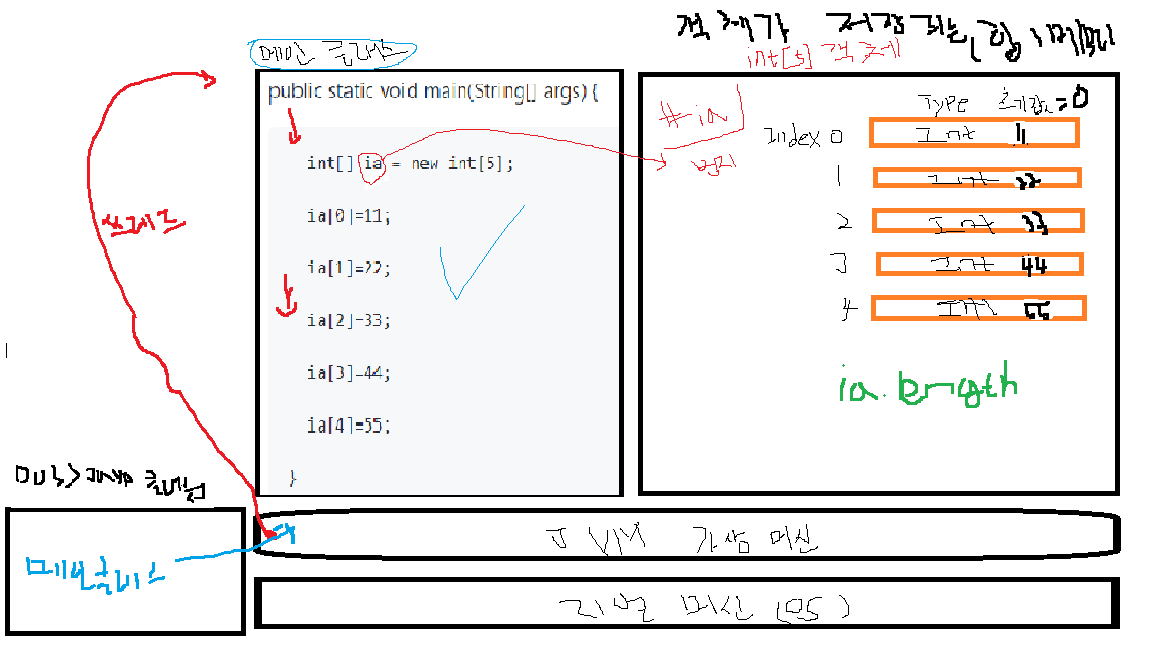 객체가 저장되는 (힙) 메모리
메인 클래스
int[5] 객체
public static void main(String[] args) {
int[] ia = new int[5];
ia[0]=11;
ia[1]=22;
ia[2]=33;
ia[3]=44;
ia[4]=55;
}
쓰레드
#ia
번지
Type 초기값=0
Index 0 Int 11
1 Int 22
2 Int 33
3 Int 44
4 Int 55
ia.length
메인클래스
JVM 가상 머신
리얼 머신 (OS)